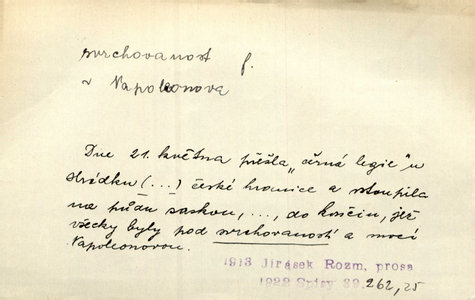 svrchovanost f.
~ Napoleonova
Dne 21. května přešla „černá legie“ u
Hrádku (...) české hranice a vstoupila
na půdu saskou, ..., do končin, jež
všecky byly pod svrchovaností a mocí
Napoleonovou.
1913 Jirásek Rozm. prosa
1922 Spisy 39. 262, 25